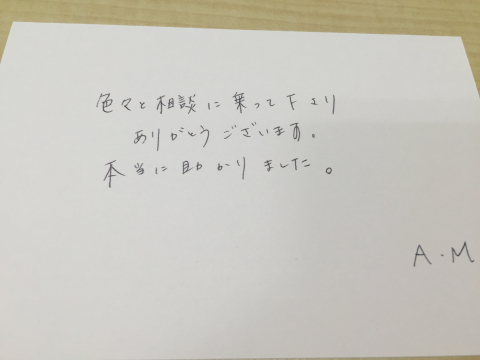 色々と相談に乗って下さり
ありがとうございます。
本当に助かりました。
A.M